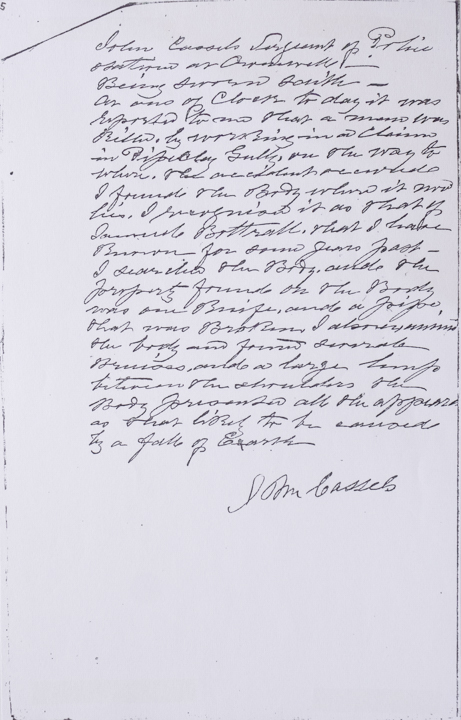 5
John Cassels Sergeant of Police
stationed at Cromwell
Being sworn saith —
at one of Clock to day it was
reported to me that a man was
Killed by working in a Claim
in Pipeclay Gully, on the way to
where the accident occurred
I found the Body where it now
lies, I recognised it as that of
Samuel Bottrall, that I have
Known for some years past —
I searched the Body, and the
property found on the Body
was one Knife, and a pipe,
that was Broken, I also examined
the body and found several
Bruises, and a large lump
between the shoulders the
Body presented all the appeara
as that likely to be caused
by a fall of Earth
John Cassels